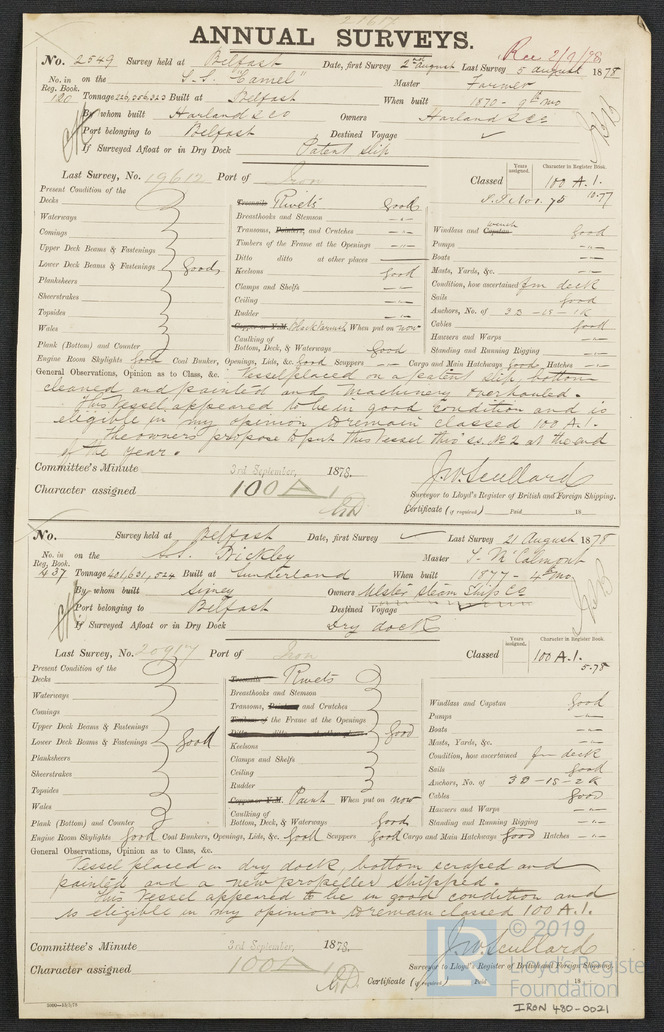 ANNUAL SURVEYS.
Rec 2/9/78
No. 2549 Survey held at Belfast Date, first Survey 2nd August Last Survey 5 august 1878
No. in Reg. Book. on the S.S. "Camel" Master Farmer
180 Tonnage Built at Belfast When built 1870 - 9th mo
By whom built Harland & Co Owners Harland & Co
Port belonging to Belfast Destined Voyage
If Surveyed Afloat or in Dry Dock Patent Slip
Last Survey, No. 19612 Port of Iron Classed 100 A.1.
Years assigned. Character in Register Book.
10.77
Present Condition of the
Decks
Waterways
Comings
Upper Deck Beams & Fastenings
Lower Deck Beams & Fastenings Good
Planksheers
Sheerstrakes
Topsides
Wales
Plank (Bottom) and Counter
Treenails Rivets Good
Breasthooks and Stemson
Transoms, Pointers, and Crutches
Timbers of the Frame at the Openings
Ditto ditto at other places
Keelsons Good
Clamps and Shelfs
Ceiling
Rudder
Copper or Y.M. Blackvarnish When put on now
Caulking of Bottom, Deck, & Waterways Good
Windlass and Capstan winch Good
Pumps
Boats
Masts, Yards, &c.
Condition, how ascertained fm deck
Sails good
Anchors, No. of 3B - 1S - 1K
Cables Good
Hawsers and Warps
Standing and Running Rigging
Engine Room Skylights Good Coal Bunker, Openings, Lids, &c. Good Scuppers Cargo and Main Hatchways Good Hatches
General Observations, Opinion as to Class, &c. Vessel placed on a patent slip, bottom
cleaned and painted and Machinery overhauled.
This Vessel appeared to be in good condition and is
eligible in my opinion to remain classed 100 A.1.
The owners propose to put this Vessel thro' S.S. No 2 at the end
of the year.
Committee's Minute 3rd September, 1878.
Character assigned 100 A 1
J.W. Scullard
Surveyor to Lloyd's Register of British and Foreign Shipping.
Certificate (if required) Paid 18
No. Survey held at Belfast Date, first Survey Last Survey 21 August 1878
No. in Reg. Book. on the S.S. Bickley Master McCalmont
437 Tonnage 401,631,524 Built at Sunderland When built 1877 - 4th mo.
By whom built Owners Ulster Steam Ship Co
Port belonging to Belfast Destined Voyage
If Surveyed Afloat or in Dry Dock Dry dock
Last Survey, No. 20917 Port of Iron Classed 100 A.1.
Years assigned. Character in Register Book.
5.78
Present Condition of the
Decks
Waterways
Comings
Upper Deck Beams & Fastenings
Lower Deck Beams & Fastenings Good
Planksheers
Sheerstrakes
Topsides
Wales
Plank (Bottom) and Counter
Treenails Rivets
Breasthooks and Stemson
Transoms, Pointers and Crutches
Timbers of the Frame at the Openings
Good
Keelsons
Clamps and Shelfs
Ceiling
Rudder
Copper or Y.M. Paint When put on now
Caulking of Bottom, Deck, & Waterways Good
Windlass and Capstan Good
Pumps
Boats
Masts, Yards, &c.
Condition, how ascertained fm deck
Sails Good
Anchors, No. of 3B - 1S - 2K
Cables Good
Hawsers and Warps
Standing and Running Rigging
Engine Room Skylights Good Coal Bankers, Openings, Lids, &c. Good Scuppers Good Cargo and Main Hatchways Good Hatches
General Observations, Opinion as to Class, &c.
Vessel placed in dry dock, bottom scraped and
painted and a new propeller shipped.
This Vessel appeared to be in good condition and
is eligible in my opinion to remain classed 100 A.1.
Committee's Minute 3rd September, 1878.
Character assigned 100 A 1
J.W. Scullard
Surveyor to Lloyd's Register of British and Foreign Shipping.
Certificate (if required) Paid 18
© 2019
Lloyd's Register
Foundation
IRON 480-0021